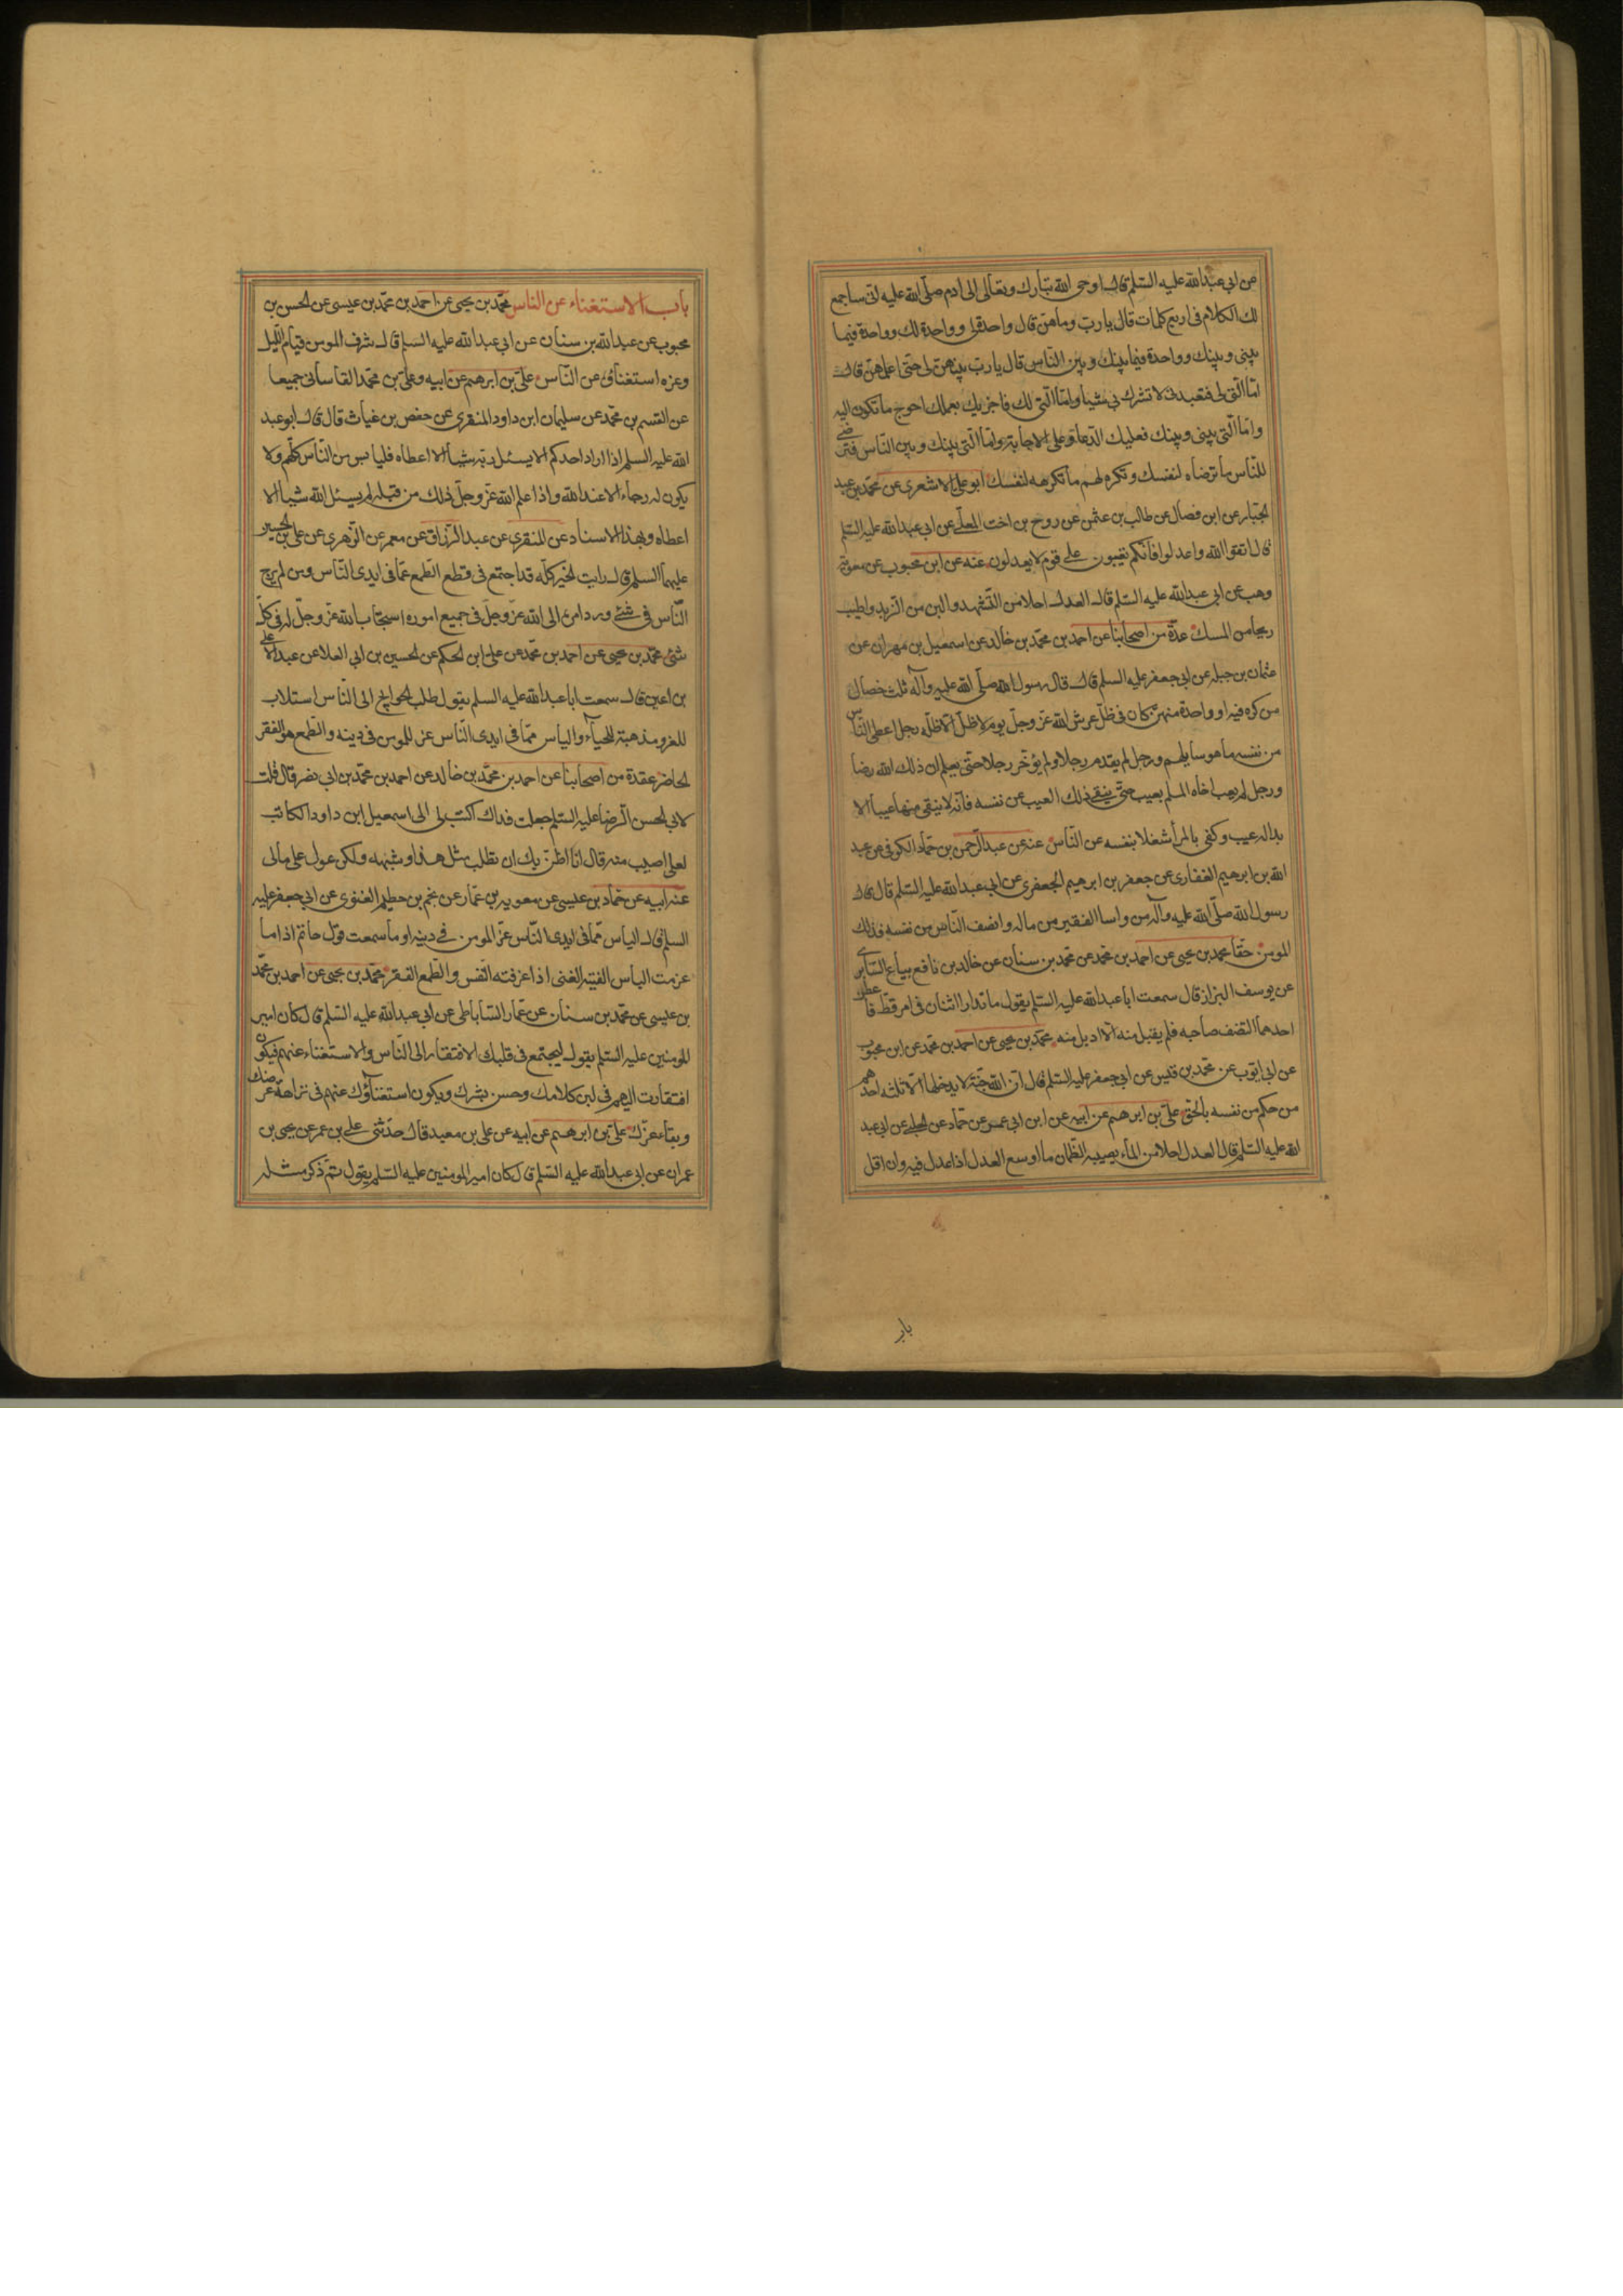 عن ابى عبدالله عليه السّلم قال اوحى الله تبارك وتعالى الى ادم صلّى الله عليه انى ساجمع
لك الكلام فى اربع كلمات قال يا ربّ وما هنّ قال واحدة لى وواحدة لك وواحدة فيما
بينى وبينك وواحدة فيما بينك وبين النّاس قال يا ربّ بيّنهن لى حتى اعلمهنّ قال
امّا الّتى لى فتعبدنى لا تشرك بى شيئا وامّا الّتى لك فاجزيك بعملك احوج ما تكون اليه
وامّا الّتى بينى وبينك فعليك الدّعاء وعلى الاجابة وامّا الّتى بينك وبين النّاس فترضى
للنّاس ما ترضاه لنفسك وتكره لهم ما تكرهه لنفسك ابو على الاشعرى عن محمّد بن عبد
الجبّار عن ابن فضال عن غالب بن عثمن عن روح بن اخت المعلّى عن ابى عبدالله عليه السّلم
قال اتقوا الله واعدلوا فانّكم تعيبون على قوم لا يعدلون عنه عن ابن محبوب عن معوية بن
وهب عن ابى عبدالله عليه السّلم قال العدل احلا من الشّهد والين من الزّبد واطيب
ريحا من المسك عدّة من اصحابنا عن احمد بن محمّد بن خالد عن اسمعيل بن مهران عن
عثمان بن جبله عن ابى جعفر عليه السلم قال قال رسول الله صلّى الله عليه وآله ثلث خصال
من كنّ فيه او واحدة منهن كان فى ظلّ عرش الله عزّ وجلّ يوم لا ظلّ الّا ظلّه رجل اعطى النّاس
من نفسه ما هو سايلهم ورجل لم يقدم رجلا ولم يؤخّر رجلا حتّى يعلم ان ذلك الله رضا
ورجل لم يعب اخاه المسلم بعيب حتّى ينفى ذلك العيب عن نفسه فانّه لا ينفى منها عيبا الا
بدا له عيب وكفى بالمرأ شغلا بنفسه عن النّاس عنه عن عبد الرّحمن بن حمّاد الكوفى عن عبد
الله بن ابرهيم الغفارى عن جعفر بن ابرهيم الجعفرى عن ابى عبدالله عليه السّلم قال قال
رسول الله صلّى الله عليه وآله من واسا الفقير من ماله وانصف النّاس من نفسه فذلك
المومن حقّا محمد بن يحيى عن احمد بن محمد عن محمد بن سنان عن خالد بن نافع بياع السّابرى
عن يوسف البزاز قال سمعت ابا عبدالله عليه السّلم يقول ما تدارا اثنان فى امر قطّ فاعطى
احدهما النّصف صاحبه فلم يقبل منه الّا اديل منه محمّد بن يحيى عن احمد بن محمّد عن ابن محبوب
عن ابى ايّوب عن محمّد بن قيس عن ابى جعفر عليه السّلم قال انّ الله جنّة لا يدخلها الّا ثلثه احدهم
من حكم من نفسه بالحقّ علىّ بن ابرهيم عن ابيه عن ابن ابى عمير عن حمّاد عن الحلبى عن ابى عبد
الله عليه السّلم قال العدل احلا من الماء يصيبه الظّمان ما اوسع العدل اذا عدل فيه وان اقل
باب
باب الاستغناء عن الناس محمّد بن يحيى عن احمد بن محمّد بن عيسى عن الحسن بن
محبوب عن عبدالله بن سنان عن ابى عبدالله عليه السّلم قال شرف المومن قيام اللّيل
وعزه استغناؤه عن النّاس علىّ بن ابرهيم عن ابيه وعلىّ بن محمّد القاسانى جميعا
عن القسم بن محمّد عن سليمان ابن داود المنقرى عن حفص بن غياث قال قال ابو عبد
الله عليه السلم اذا اراد احدكم الا يسئل ربّه شيأ الا اعطاه فليايس من النّاس كلّهم ولا
يكون له رجاء الا عند الله واذا علم الله عزّ وجلّ ذلك من قبله لم يسئل الله شيأ الا
اعطاه وبهذا الاسناد عن المنقرى عن عبد الرّزاق عن معمر عن الزّهرى عن على بن الحسين
عليهما السلم قال رايت الخير كلّه قد اجتمع فى قطع الطّمع عمّا فى ايدى النّاس ومن لم يرج
النّاس فى شئ ورد امره الى الله عزّ وجلّ فى جميع اموره استجاب الله عزّ وجلّ له فى كلّ
شئ محمّد بن يحيى عن احمد بن محمّد عن على ابن الحكم عن الحسين بن ابى العلا عن عبد الاعلى
بن اعين قال سمعت ابا عبدالله عليه السلم يقول طلب الحوايج الى النّاس استلاب
للعز ومذهبة للحياء والياس ممّا فى ايدى النّاس عز للمومن فى دينه والطّمع هو الفقر
الحاضر عدة من اصحابنا عن احمد بن محمّد بن خالد عن احمد بن محمّد بن ابى نصر قال قلت
لابى الحسن الرّضا عليه السّلم جعلت فداك اكتب لى الى اسمعيل ابن داود الكاتب
لعلى اصيب منه قال انا اظنّ بك ان تطلب مثل هذا وشبهه ولكن عول على مالى
عنه ابيه عن حمّاد بن عيسى عن معويه بن عمّار عن نجم بن حطيم الغنوى عن ابى جعفر عليه
السلم قال الياس ممّا فى ايدى النّاس عزّ المومن فى دينه او ما سمعت قول حاتم اذا ما
عزمت الياس الفيته الغنى اذا عرفته النّفس والطّمع الفقر محمّد بن يحيى عن احمد بن محمّد
بن عيسى عن محمّد بن سنان عن عمّار السّاباطى عن ابى عبدالله عليه السّلم قال كان امير
المومنين عليه السّلم يقول ليجتمع فى قلبك الافتقار الى النّاس والاستغناء عنهم فيكون
افتقارك اليهم فى لين كلامك وحسن بشرك ويكون استغناؤك عنهم فى نزاهة عرضك
وبقاء عزّك علىّ بن ابرهيم عن ابيه عن على بن معبد قال حدّثنى على بن عمر عن يحيى بن
عمران عن ابى عبدالله عليه السّلم قال كان امير المومنين عليه السّلم يقول ثمّ ذكر مثله